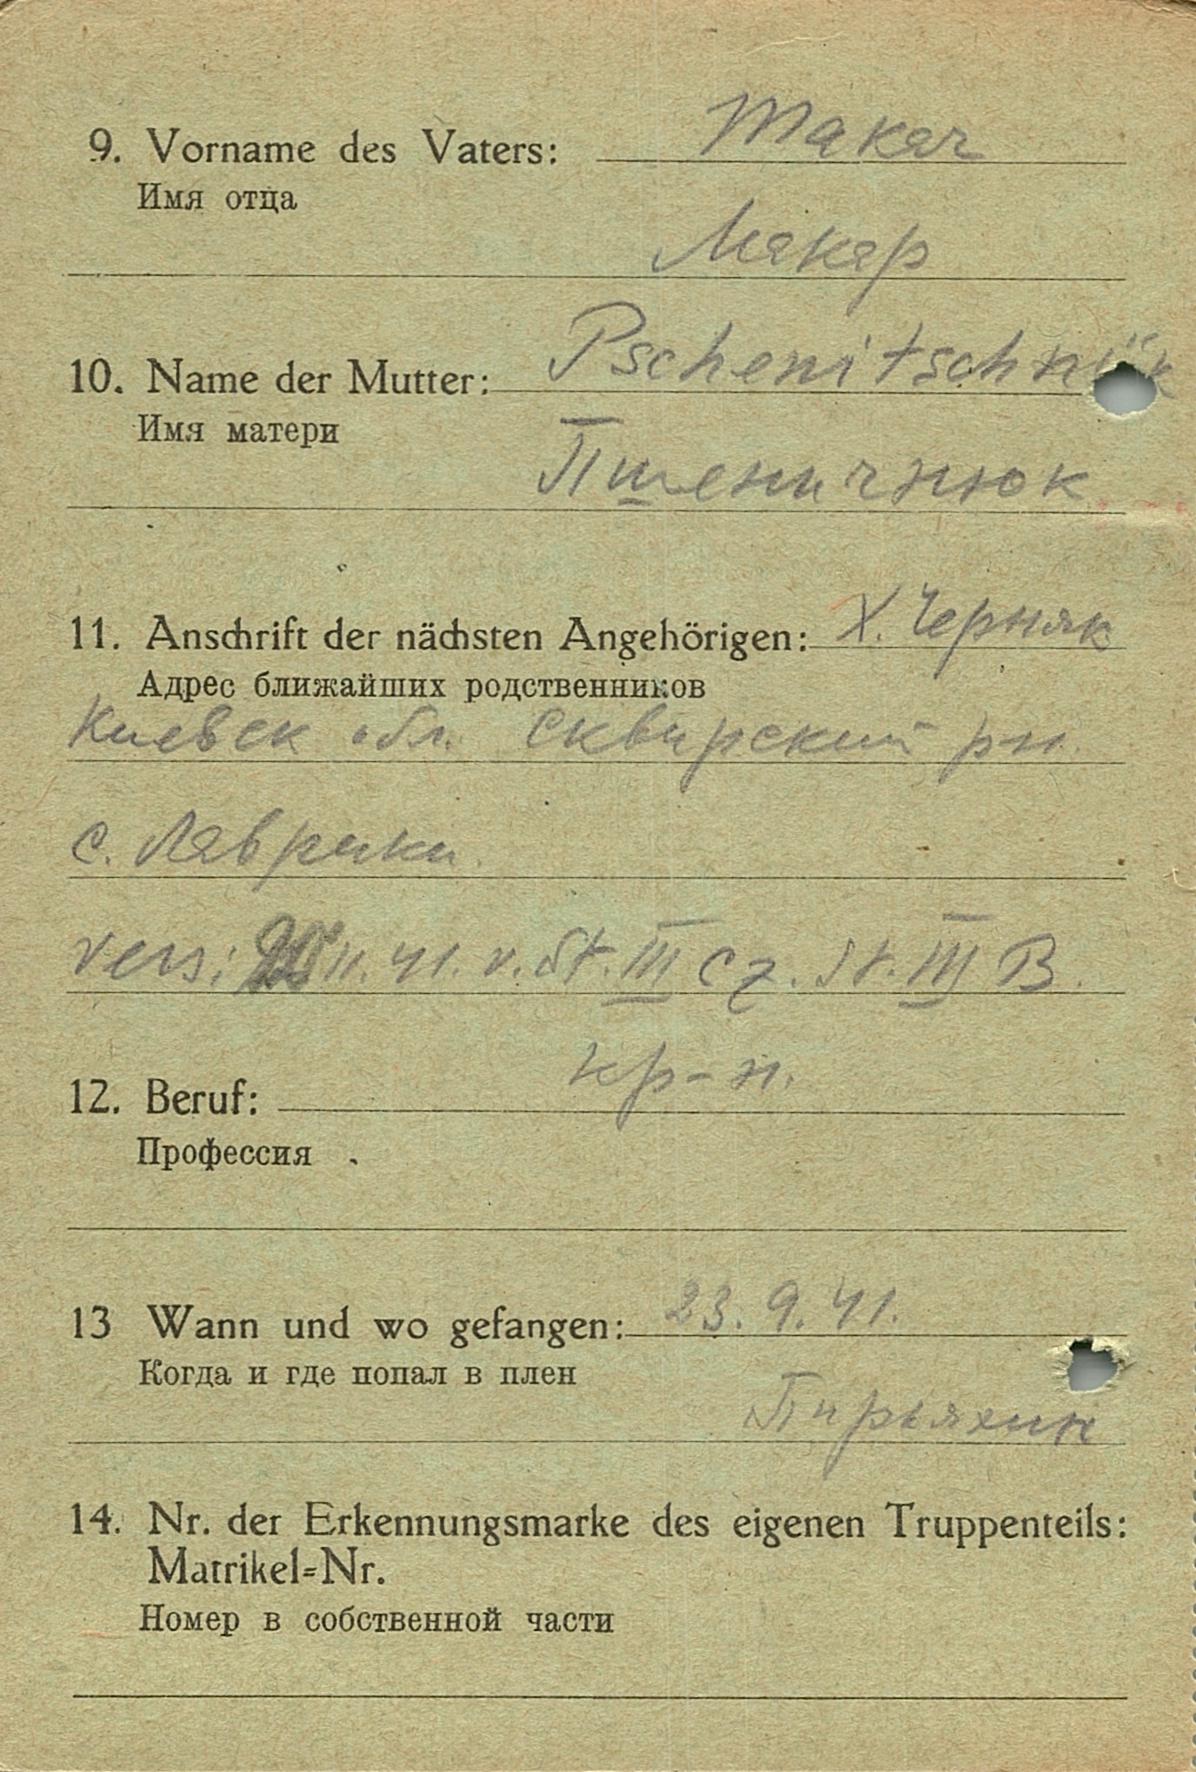 9. Vorname des Vaters: Makar
Имя отца
Макар
10. Name der Mutter: Pschenitschnük
Имя матери
Пшеничнюк
11. Anschrift der nächsten Angehörigen: Х. Черняк
Адрес ближайших родственников
Киевск обл. Сквирский р-н.
с. Лаврики.
vers: 11. 41. v. St. III C z. St. III B.
12. Beruf: кр-н.
Профессия
13 Wann und wo gefangen: 23. 9. 41.
Когда и где попал в плен
Пирьяхин
14. Nr. der Erkennungsmarke des eigenen Truppenteils:
Matrikel-Nr.
Номер в собственной части